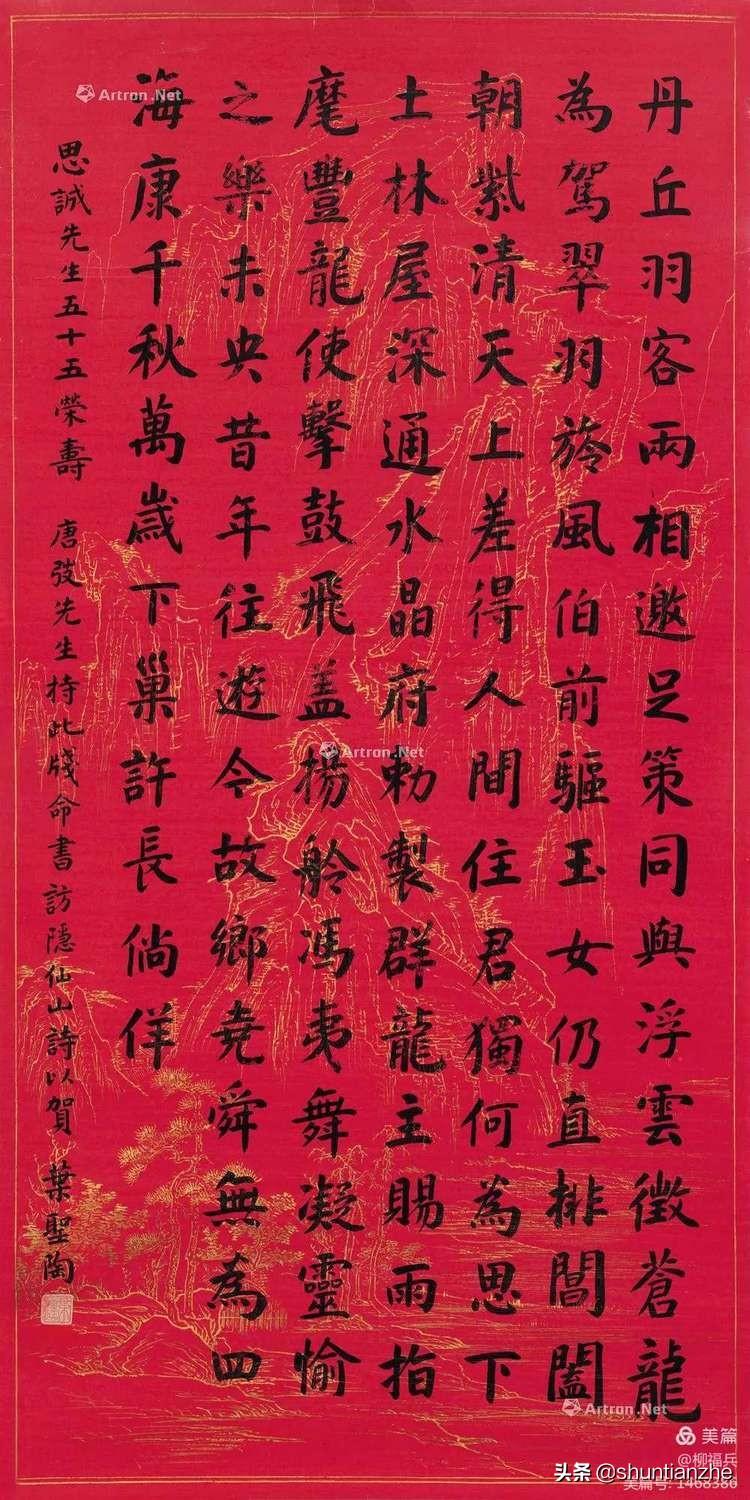 丹丘羽客兩相邀足策同與浮雲徵蒼龍
為駕翠羽旍風伯前驅玉女仍直排閶闔
朝紫清天上差得人間住君獨何為思下
土林屋深通水晶府勅製群龍主賜雨指
麾豐龍使擊鼓飛蓋楊舲馮夷舞凝靈愉
之樂未央昔年往遊今故鄉堯舜無為四
海康千秋萬歲下巢許長倘佯
思誠先生五十五榮壽 唐弢先生持此牋命書訪隱仙山詩以賀 葉聖陶
Artron.Net
Artron.Net
Artron.Net
美篇
@柳福兵
美篇号: 1468386
头条 @shuntianzhe